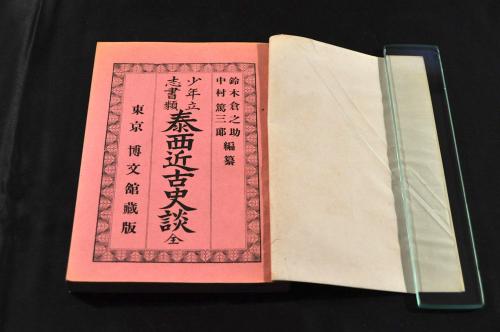 鈴木倉之助
中村篤三郎
編纂
少年立
志書類
泰西近古史談 全
東京 博文館蔵版